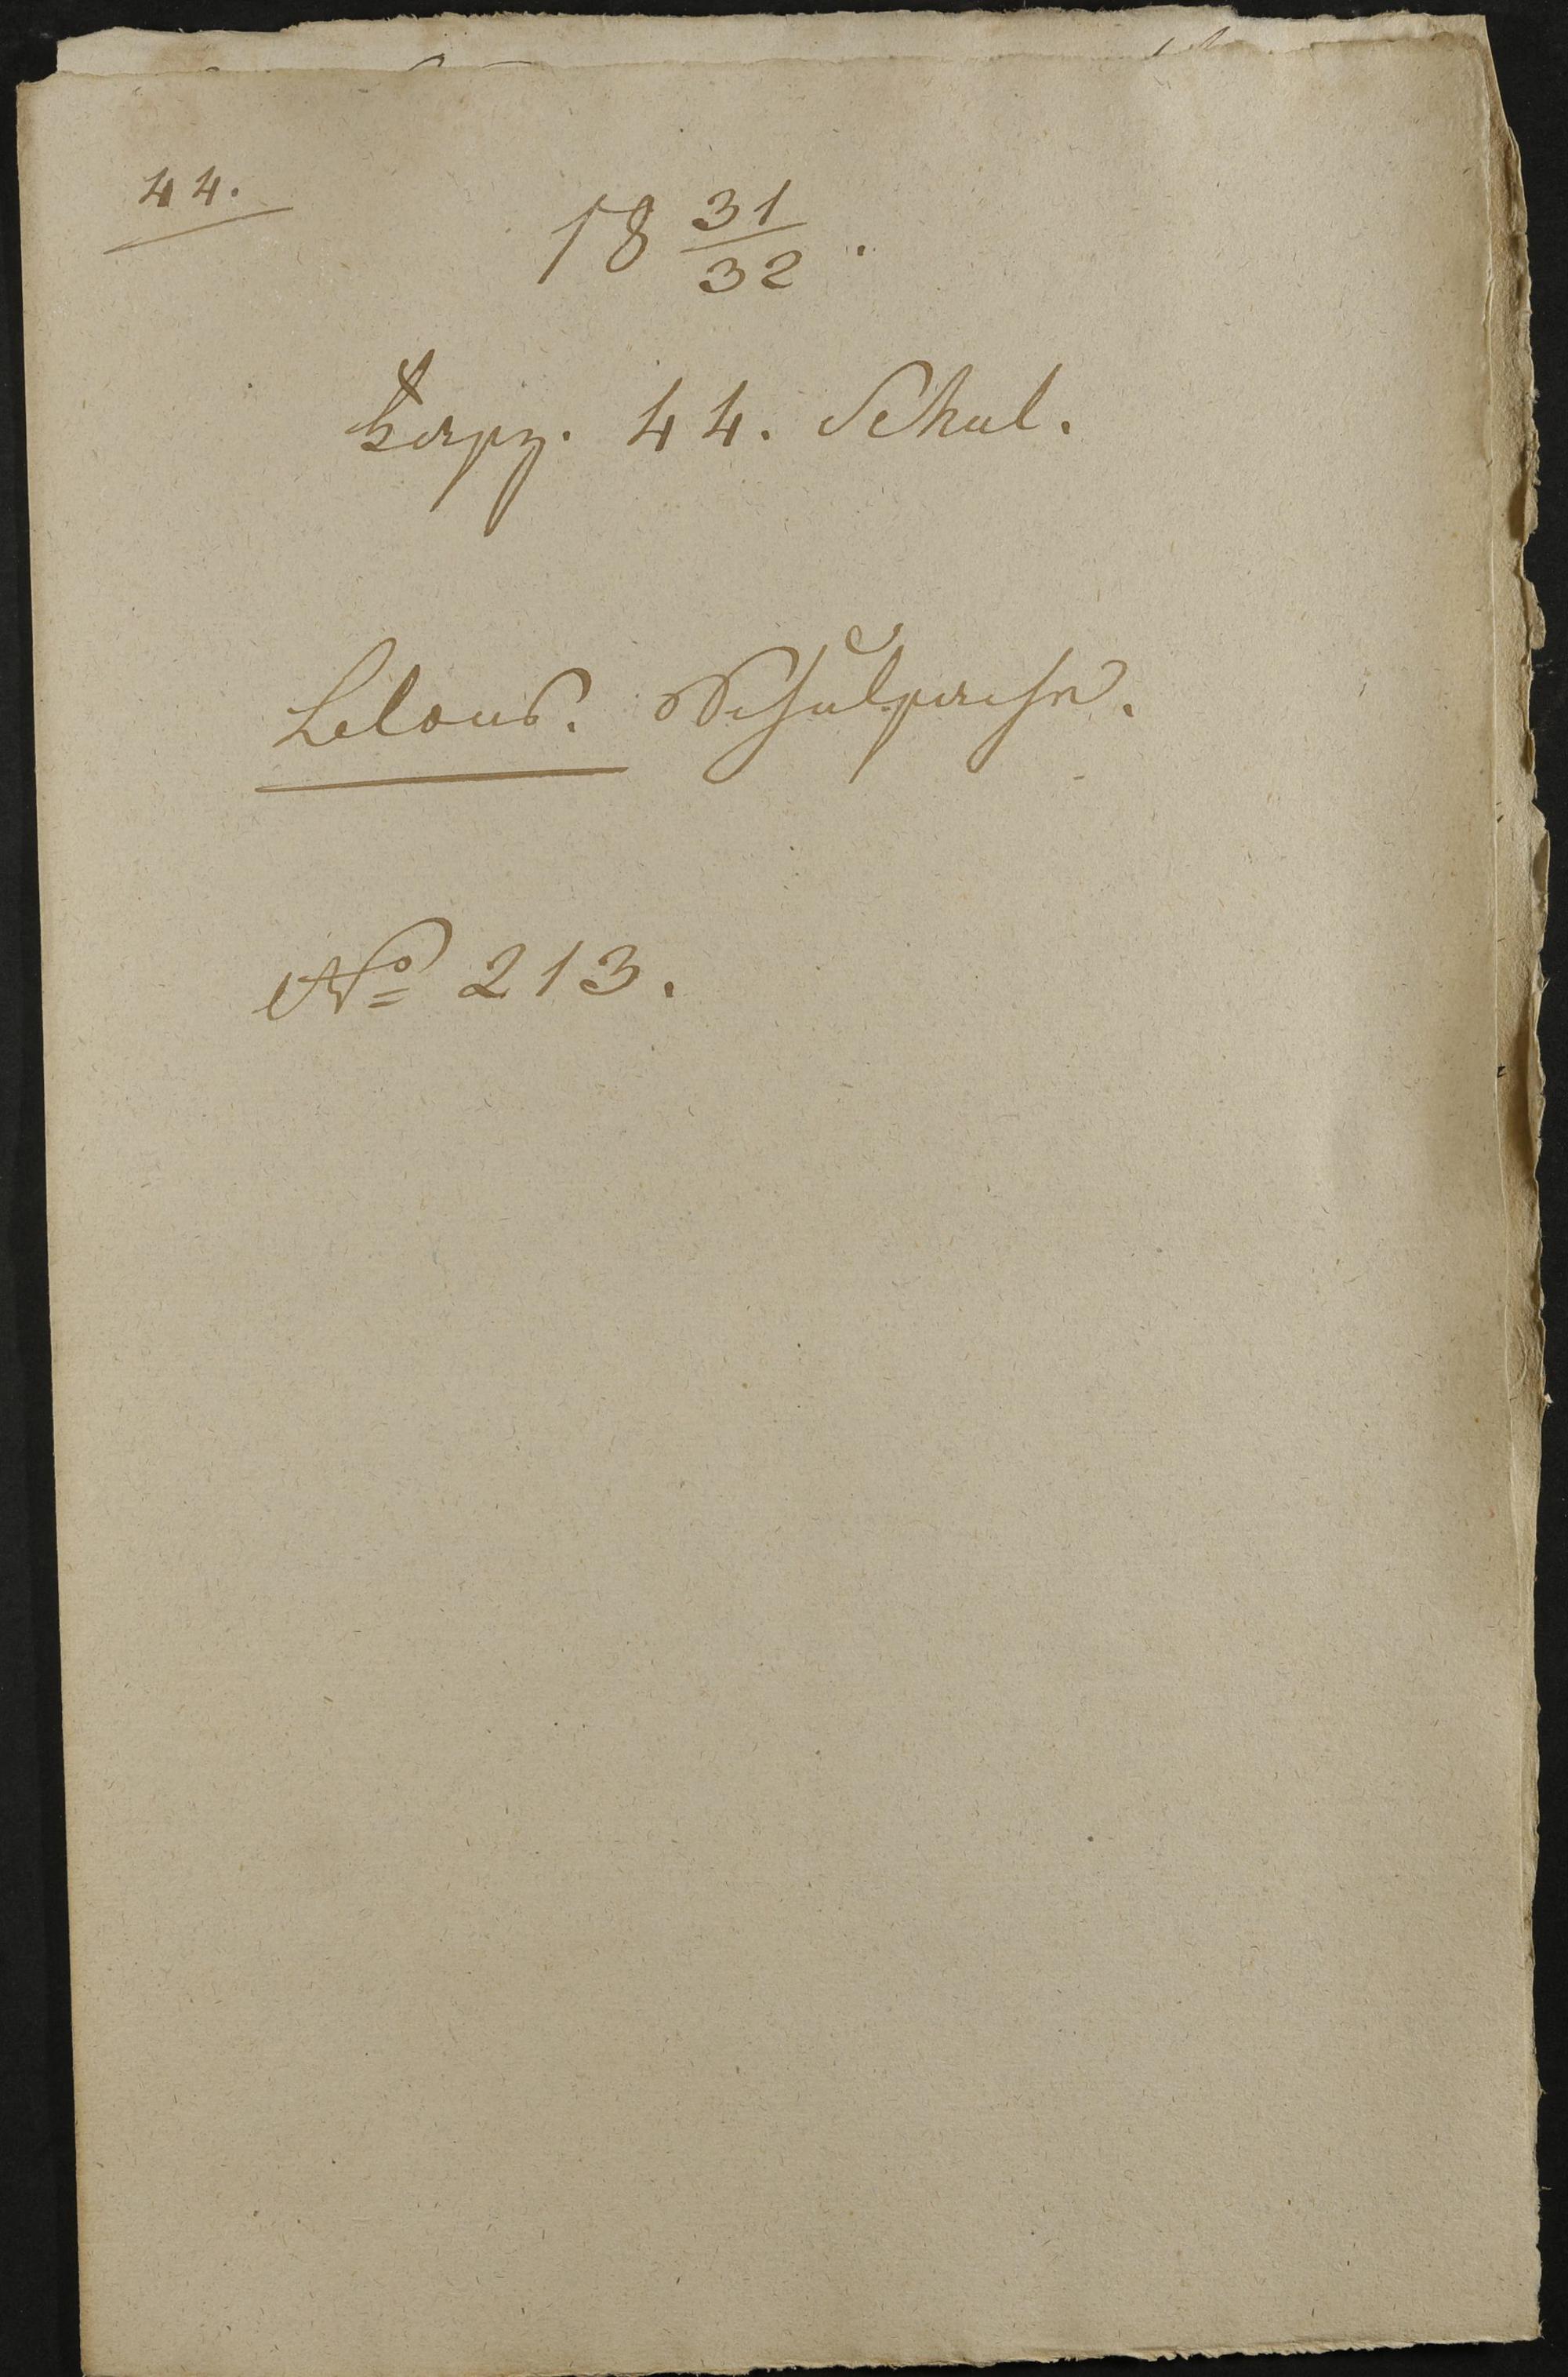 44.
18 31/32.
Kapz. 44. Schul.
Lelans. Schulsache.
No 213.